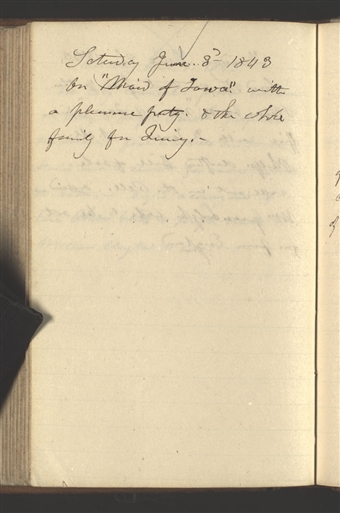 Saturday June 3d 1843
On "Maid of Iowa" with
a pleasure party. & the whole
family for Quincy.-